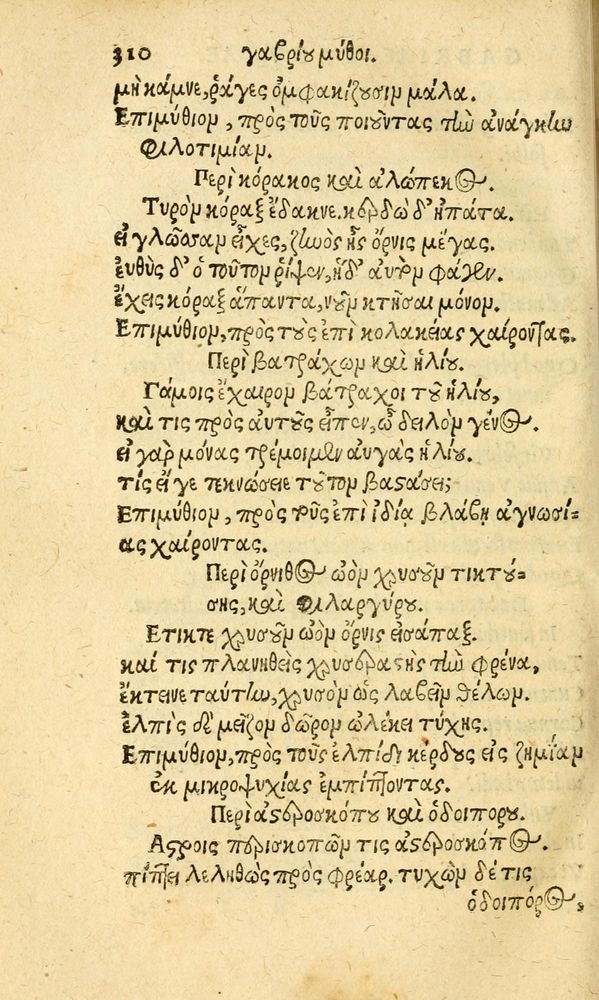 310 γαβρίου μύθοι.
μὴ κάμνε, ῥάγες ὀμφακίζουσιν μάλα.
Επιμύθιον, πρὸς τοὺς ποιοῦντας τὴν ἀνάγκην
φιλοτιμίαν.
Περὶ κόρακος καὶ ἀλώπεκος.
Τυρὸν κόραξ ἔδακνε. κερδὼ δ' ἠπάτα.
εἰ γλῶσσαν εἶχες, ζηνὸς ἧς ὄρνις μέγας.
εὐθὺς δ' ὁ τοῦτον ῥίψεν, ἡ δ' αὐτὸν φάγεν.
ἔχεις κόραξ ἅπαντα, νοῦν κτῆσαι μόνον.
Επιμύθιον, πρὸς τοὺς ἐπὶ κολακείας χαίροντας.
Περὶ βατράχων καὶ ἡλίου.
Γάμοις ἔχαιρον βάτραχοι τοῦ ἡλίου,
καὶ τις πρὸς αὐτοὺς εἶπεν, ὦ δειλὸν γένος.
εἰ γὰρ μόνας τρέμοιμεν αὐγὰς ἡλίου.
τίς εἴ γε τεκνώσειε τοῦτον βαστάσει;
Επιμύθιον, πρὸς τοὺς ἐπὶ ἰδίᾳ βλάβῃ ἀγνωσί-
ας χαίροντας.
Περὶ ὄρνιθος ὠὸν χρυσοῦν τικτού-
σης, καὶ φιλαργύρου.
Ετικτε χρυσοῦν ὠὸν ὄρνις εἰσάπαξ.
καί τις πλανηθεὶς χρυσεραστὴς τὴν φρένα,
ἔκτεινε ταύτην, χρυσὸν ὡς λαβεῖν θέλων.
ἐλπὶς δὲ μεῖζον δῶρον ὠλέκει τύχης.
Επιμύθιον, πρὸς τοὺς ἐλπίδι κέρδους εἰς ζημίαν
ἐκ μικροψυχίας ἐμπίπτοντας.
Περὶ ἀστεροσκόπου καὶ ὁδοιπόρου.
Αστροις περισκοπῶν τις ἀστεροσκόπος.
πίπτει λεληθὼς πρὸς φρέαρ. τυχὼν δέ τις
ὁδοιπόρος,